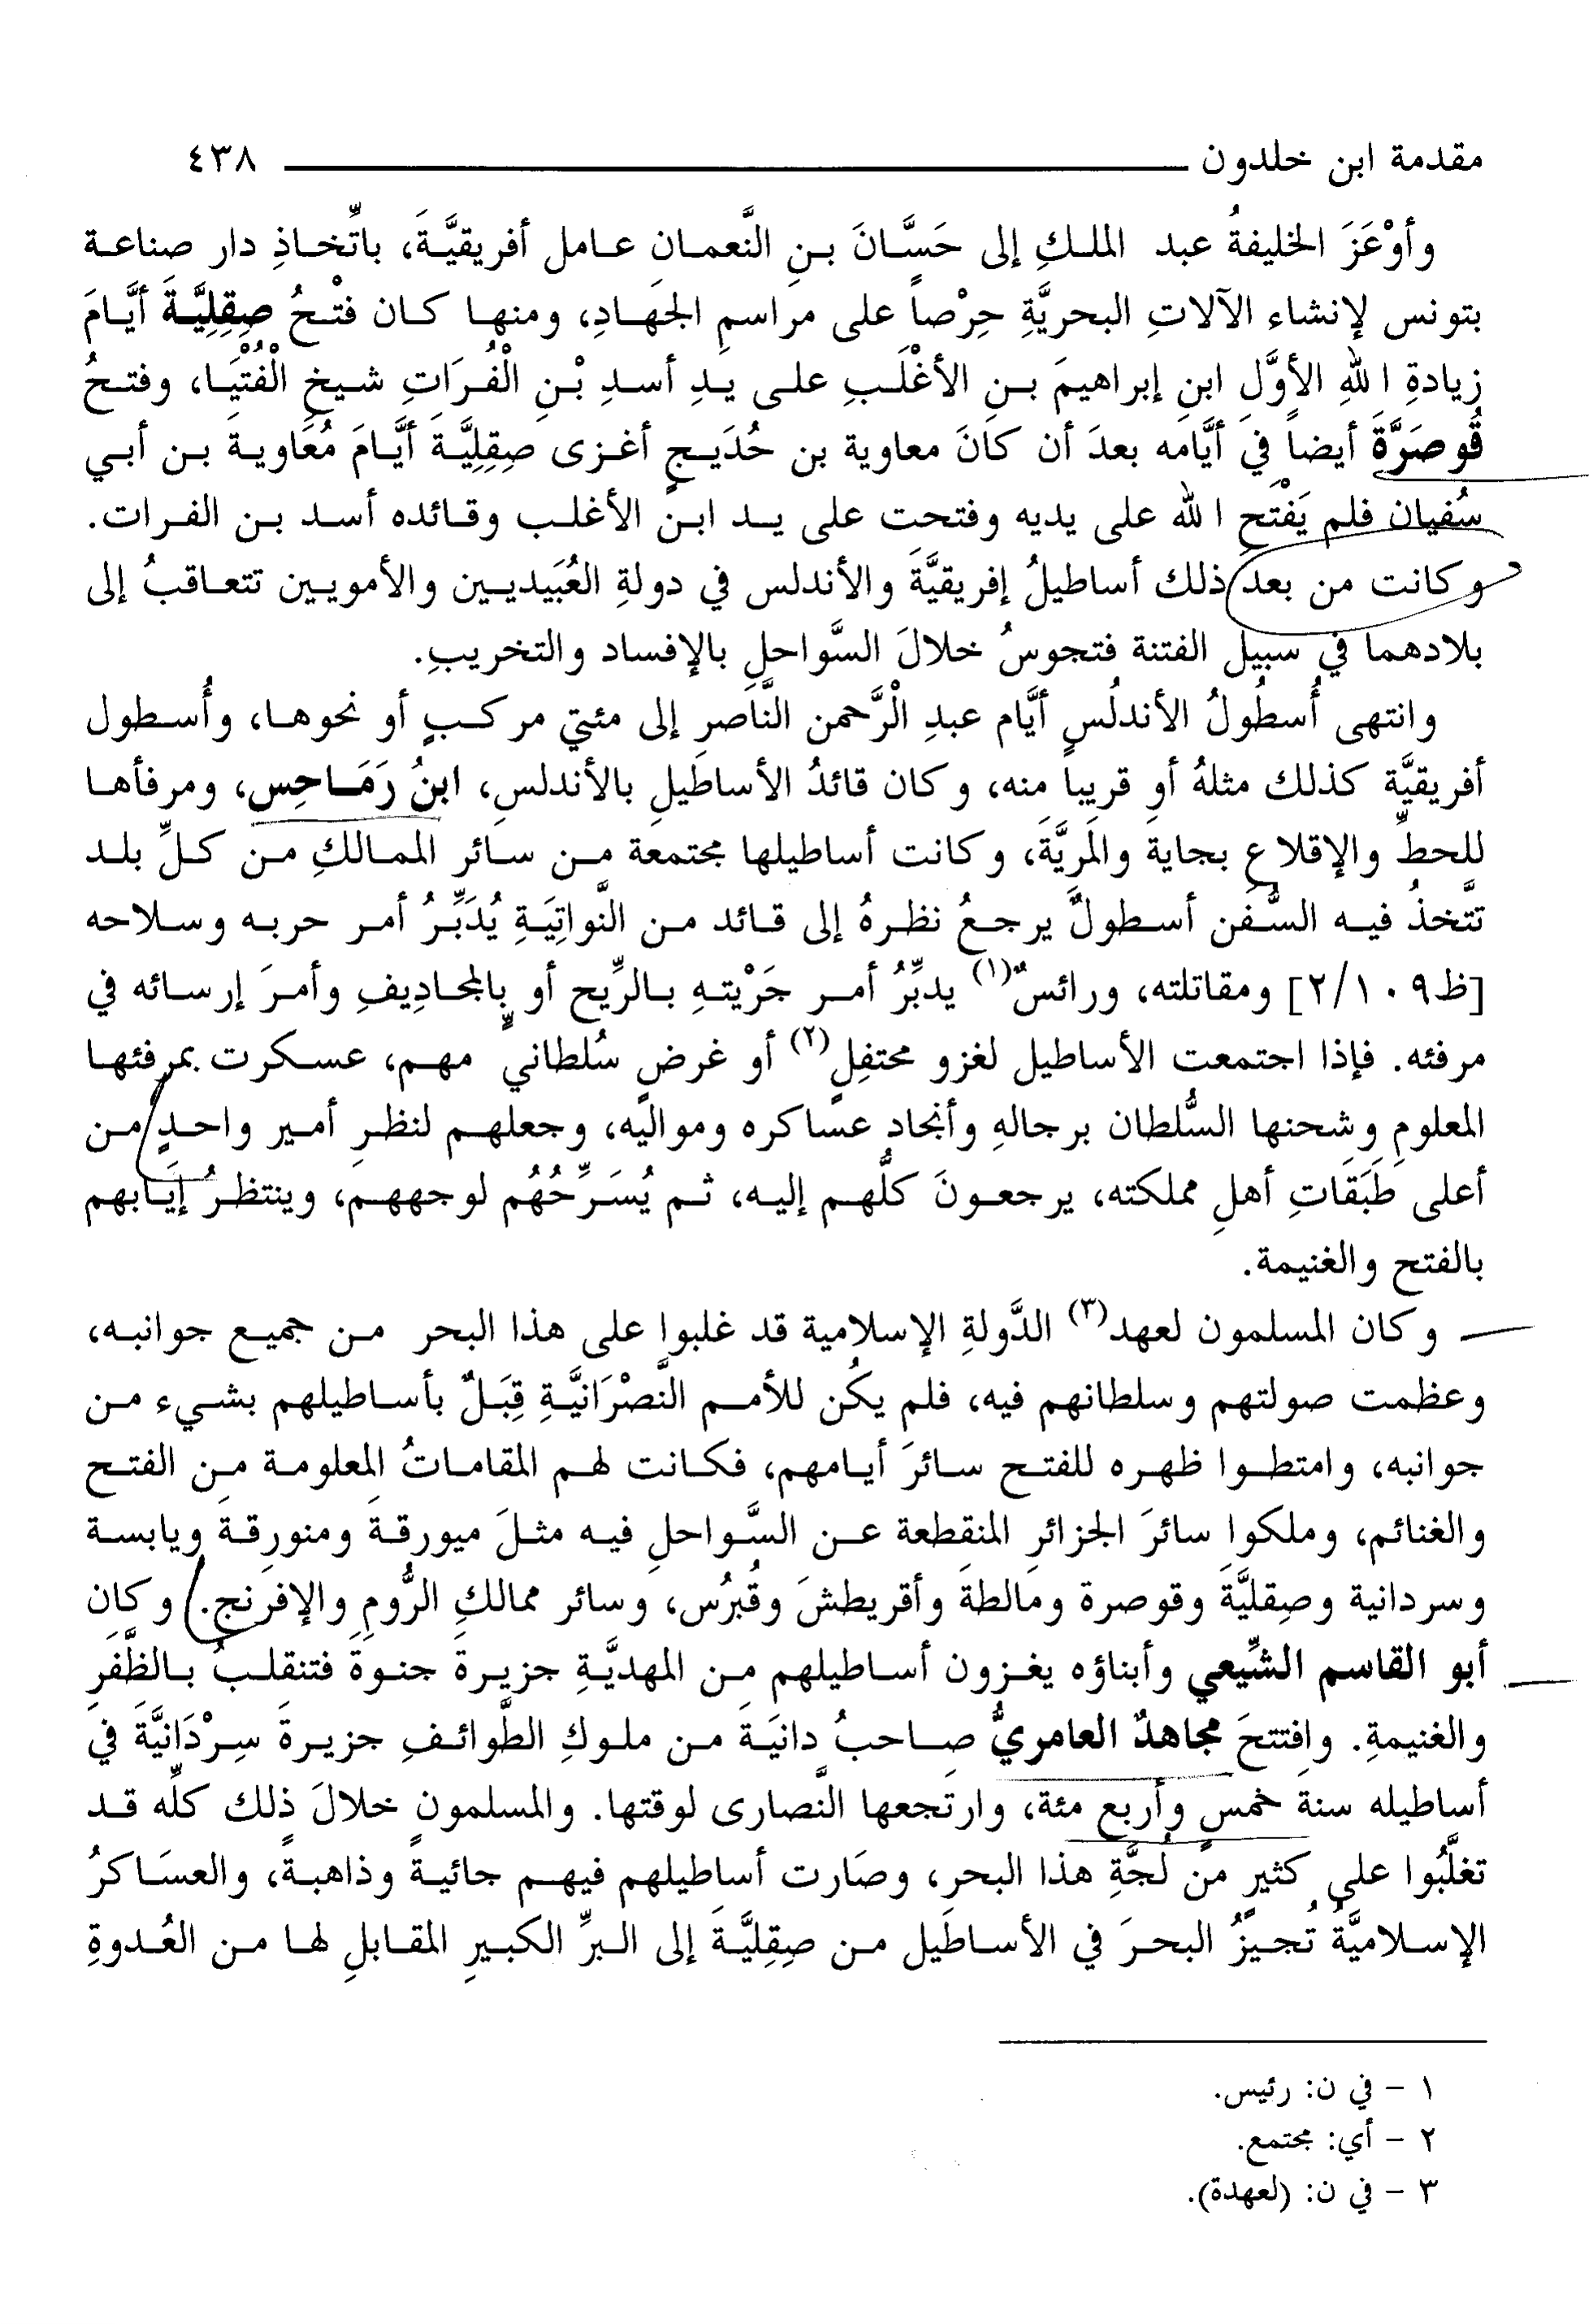 مقدمة ابن خلدون ٤٣٨
وأوْعَزَ الخليفةُ عبد الملكِ إلى حَسَّانَ بنِ النَّعمانِ عامل أفريقيَّةَ، باتِّخاذِ دار صناعة
بتونس لإنشاء الآلاتِ البحريَّةِ حِرْصاً على مراسمِ الجهادِ، ومنها كان فتْحُ صِقِلِيَّةَ أيَّامَ
زيادةِ اللهِ الأوَّل ابنِ إبراهيمَ بنِ الأغْلَبِ على يدِ أسدِ بْنِ الْفُرَاتِ شيخِ الْفُتْيَا، وفتحُ
قُوصَرَّةَ أيضاً في أيَّامه بعدَ أن كانَ معاوية بن حُدَيجٍ أغزى صِقِلِيَّةَ أيَّامَ مُعَاويةَ بن أبي
سُفيان فلم يَفْتَحِ الله على يديه وفتحت على يد ابن الأغلب وقائده أسد بن الفرات.
وكانت من بعد ذلك أساطيلُ إفريقيَّةَ والأندلس في دولةِ العُبَيديين والأمويين تتعاقبُ إلى
بلادهما في سبيل الفتنة فتجوسُ خلالَ السَّواحلِ بالإفساد والتخريبِ.
وانتهى أُسطُولُ الأندلُسِ أيَّام عبدِ الْرَّحمن النَّاصرِ إلى مئتي مركبٍ أو نحوها، وأُسطول
أفريقيَّة كذلك مثلهُ أو قريباً منه، وكان قائدُ الأساطيلِ بالأندلسِ، ابنُ رَمَاحِس، ومرفأها
للحطِّ والإقلاعِ بجاية والمَريَّةَ، وكانت أساطيلها مجتمعة من سائر الممالكِ من كلِّ بلد
تتَّخذُ فيه السُّفن أسطولٌ يرجعُ نظرهُ إلى قائد من النَّواتِيَةِ يُدَبِّرُ أمر حربه وسلاحه
[ظ٢/١٠٩] ومقاتلته، ورائسٌ(١) يدبِّرُ أمر جَرْيتهِ بالرِّيح أو بالمجادِيفِ وأمرَ إرسائه في
مرفئه. فإذا اجتمعت الأساطيل لغزو محتفِلٍ(٢) أو غرضٍ سُلطانيٍّ مهم، عسكرت بمرفئها
المعلومِ وشحنها السُّلطان برجالهِ وأنجادِ عساكره ومواليه، وجعلهم لنظرِ أمير واحدٍ من
أعلى طَبَقَاتِ أهلِ مملكته، يرجعونَ كلُّهم إليه، ثم يُسَرِّحُهُم لوجههم، وينتظرُ إيَابهم
بالفتح والغنيمة.
وكان المسلمون لعهد(٣) الدَّولةِ الإسلامية قد غلبوا على هذا البحر من جميع جوانبه،
وعظمت صولتهم وسلطانهم فيه، فلم يكُن للأمم النَّصْرَانيَّةِ قِبَلٌ بأساطيلهم بشيء من
جوانبه، وامتطوا ظهره للفتح سائرَ أيامهم، فكانت لهم المقاماتُ المعلومة من الفتح
والغنائم، وملكوا سائرَ الجزائرِ المنقطعة عن السَّواحلِ فيه مثلَ ميورقةَ ومنورقةَ ويابسة
وسردانية وصِقليَّةَ وقوصرة ومالطةَ وأقريطشَ وقُبرُس، وسائر ممالكِ الرُّومِ والإفرنج. وكان
أبو القاسم الشِّيعي وأبناؤه يغزون أساطيلهم من المهديَّةِ جزيرةَ جنوةَ فتنقلبُ بالظَّفَرِ
والغنيمةِ. وافتتحَ مجاهدٌ العامريُّ صاحبُ دانيَةَ من ملوكِ الطَّوائفِ جزيرةَ سِرْدَانيَّةَ في
أساطيله سنة خمسٍ وأربع مئة، وارتجعها النَّصارى لوقتها. والمسلمون خلالَ ذلك كلِّه قد
تغلَّبُوا على كثيرٍ من لُجَّةِ هذا البحر، وصَارت أساطيلهم فيهم جائيةً وذاهبةً، والعسَاكرُ
الإسلاميَّةُ تُجيزُ البحرَ في الأساطيل من صِقِليَّةَ إلى البرِّ الكبيرِ المقابلِ لها من العُدوةِ
١ - في ن: رئيس.
٢ - أي: مجتمع.
٣ - في ن: (لعهدة).